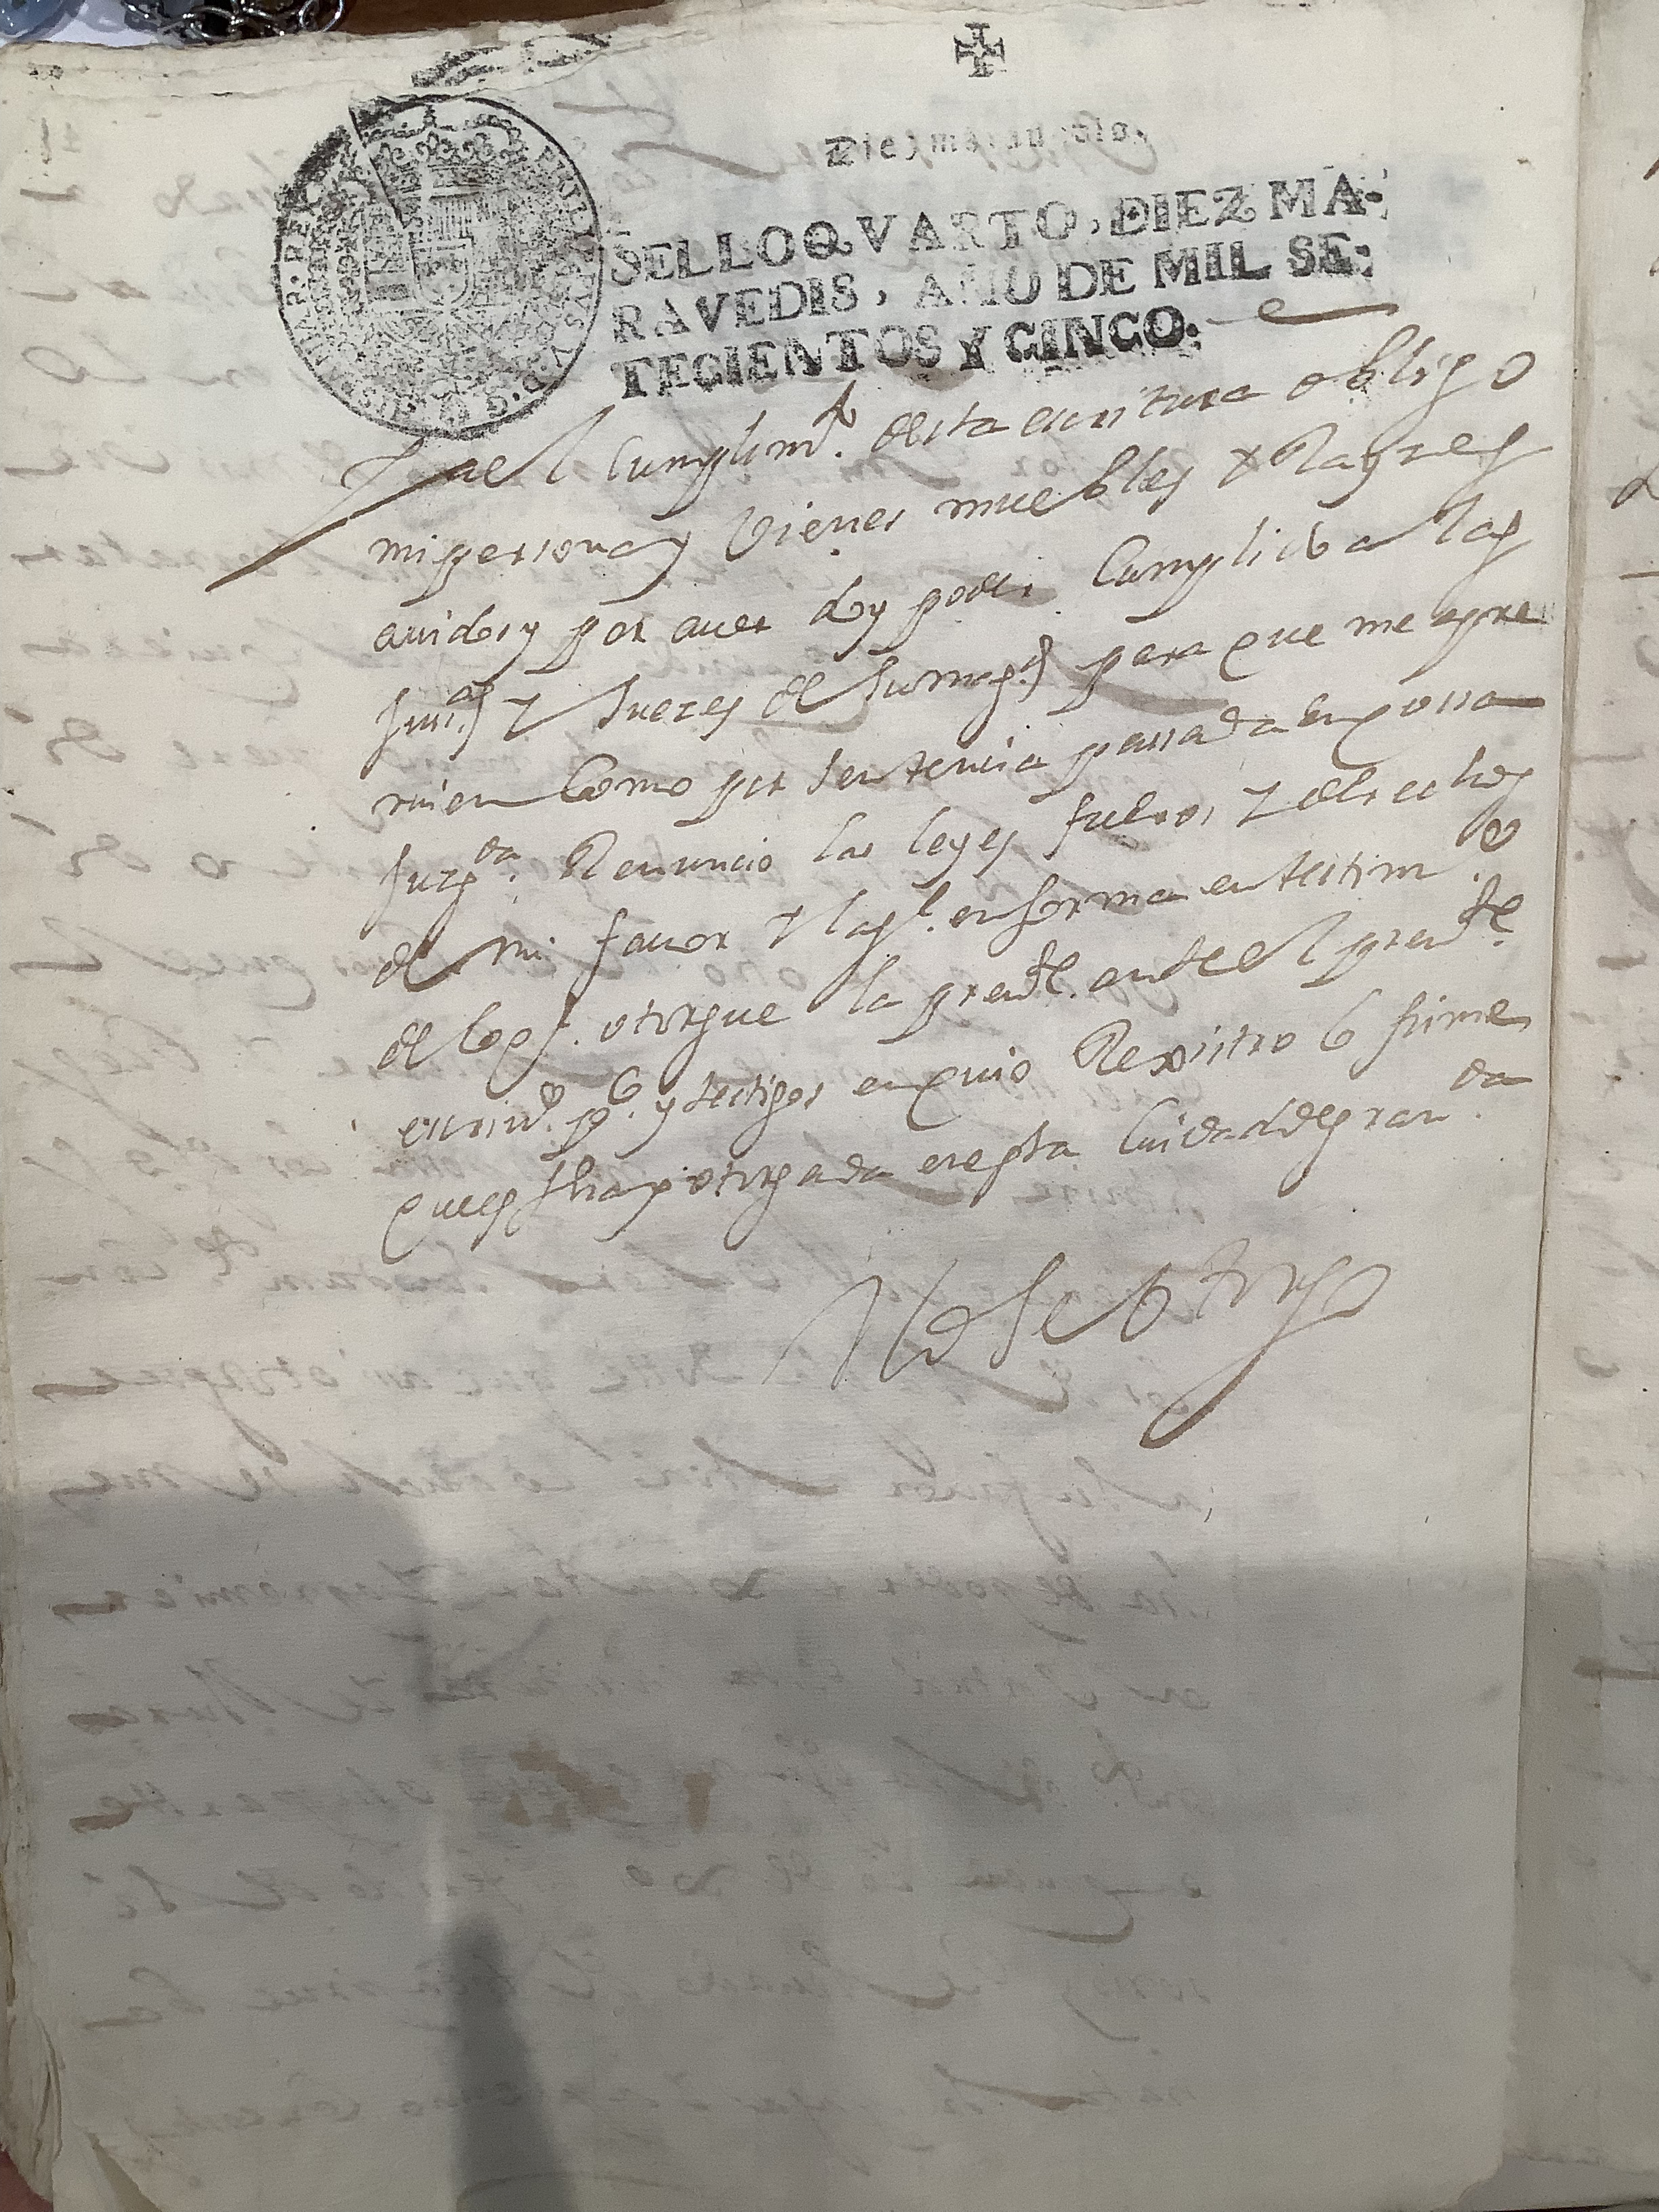 Diez marauedis.
SELLO QVARTO, DIEZ MA-
RAVEDIS, AÑO DE MIL SE-
TECIENTOS Y CINCO.
Y al cumplimto. desta escritura obligo
mi persona y vienes muebles y Rayzes
auidos y por auer doy poder Cumplido a las
Juias. y Jueces de su magd. para que me apre
mien Como por sentencia passada en cossa
Juzgda. Renuncio las leyes fueros y derechos
de mi fauor y la gl. en forma en testimo.
de lo ql. otorgue la preste. ante el preste.
escriuo. pco. y testigos en cuio Rexistro lo firme
que es fha y otorgada en esta Ciudad de granda.
No se otorgo